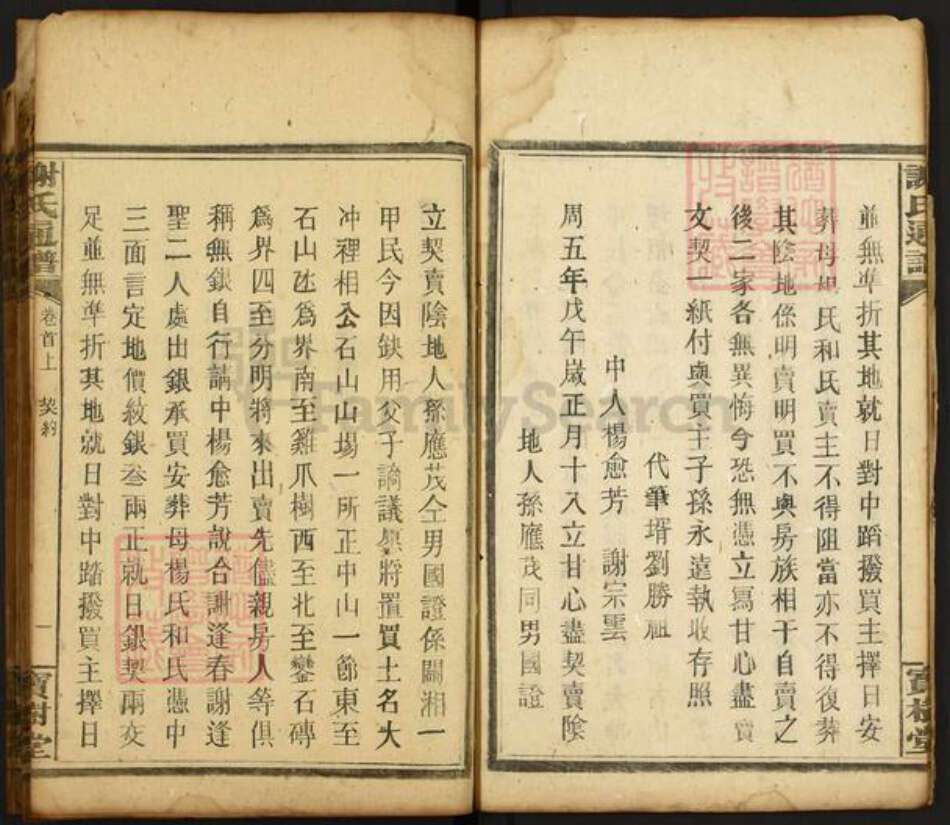 謝氏通譜
寶樹堂
並無準折其地就日對中蹈撥買主擇日安
葬母 氏和氏賣主不得阻當亦不得復葬
其陰地係明賣明買不與房族相干自賣之
後二家各無異悔今恐無憑立寫甘心盡賣
文契一紙付與買主子孫永遠執收存照
代筆壻劉勝祖
中人楊愈芳 謝宗雲
周五年戊午歲正月十八立甘心盡契賣陰
地人孫應茂同男國證
立契賣陰地人孫應茂仝男國證係關湘一
甲民今因鈌用父子謫議與將置買土名大
冲裡相公石山山塲一所正中山一節東至
石山 爲界南至雞爪樹西至北至 石磚
爲界四至分明將來出賣先儘親房人等俱
稱無銀自行請中楊愈芳說合謝逢春謝逢
聖二人處出銀承買安葬母楊氏和氏憑中
三面言定地價紋銀叁兩正就日銀契兩交
足並無準折其地就日對中踏撥買主擇日
謝氏通譜
卷首上 契約
一
寶樹堂
FamilySearch